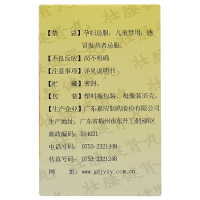 【禁　　忌】孕妇忌服，儿童禁用，感
冒发热者忌服。
【不良反应】尚不明确
【注意事项】详见说明书
【贮　　藏】密封。
【包　　装】塑料瓶包装，每瓶装35克。
【生产企业】广东嘉应制药股份有限公司
生产地址：广东省梅州市东升工业园B区
邮政编码：514021
电话号码：0753-2321248
传真号码：0753-2321248
网　　址：www.gdjyzy.com.cn